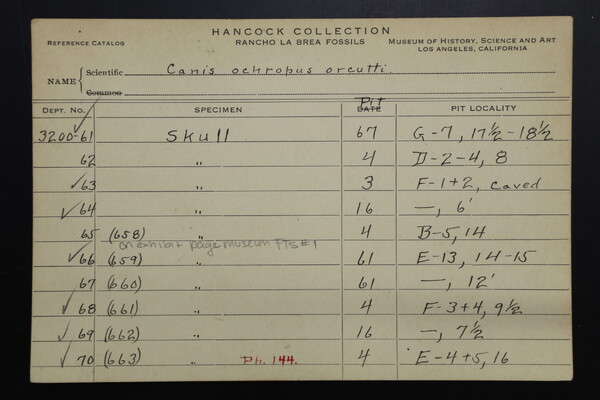 HANCOCK COLLECTION
REFERENCE CATALOG RANCHO LA BREA FOSSILS MUSEUM OF HISTORY, SCIENCE AND ART
LOS ANGELES, CALIFORNIA
NAME { Scientific Canis ochropus orcutti
Common
DEPT. NO. SPECIMEN DATE Pit PIT LOCALITY
3200-61 Skull 67 G-7, 17½-18½
62 " 4 D-2-4, 8
✓63 " 3 F-1+2, caved
✓64 " 16 —, 6'
65 (658) " 4 B-5, 14
on exhibit page museum FTS#1
✓66 (659) " 61 E-13, 14-15
67 (660) " 61 —, 12'
✓68 (661) " 4 F-3+4, 9½
✓69 (662) " 16 —, 7½
✓70 (663) " Ph. 144. 4 E-4+5, 16